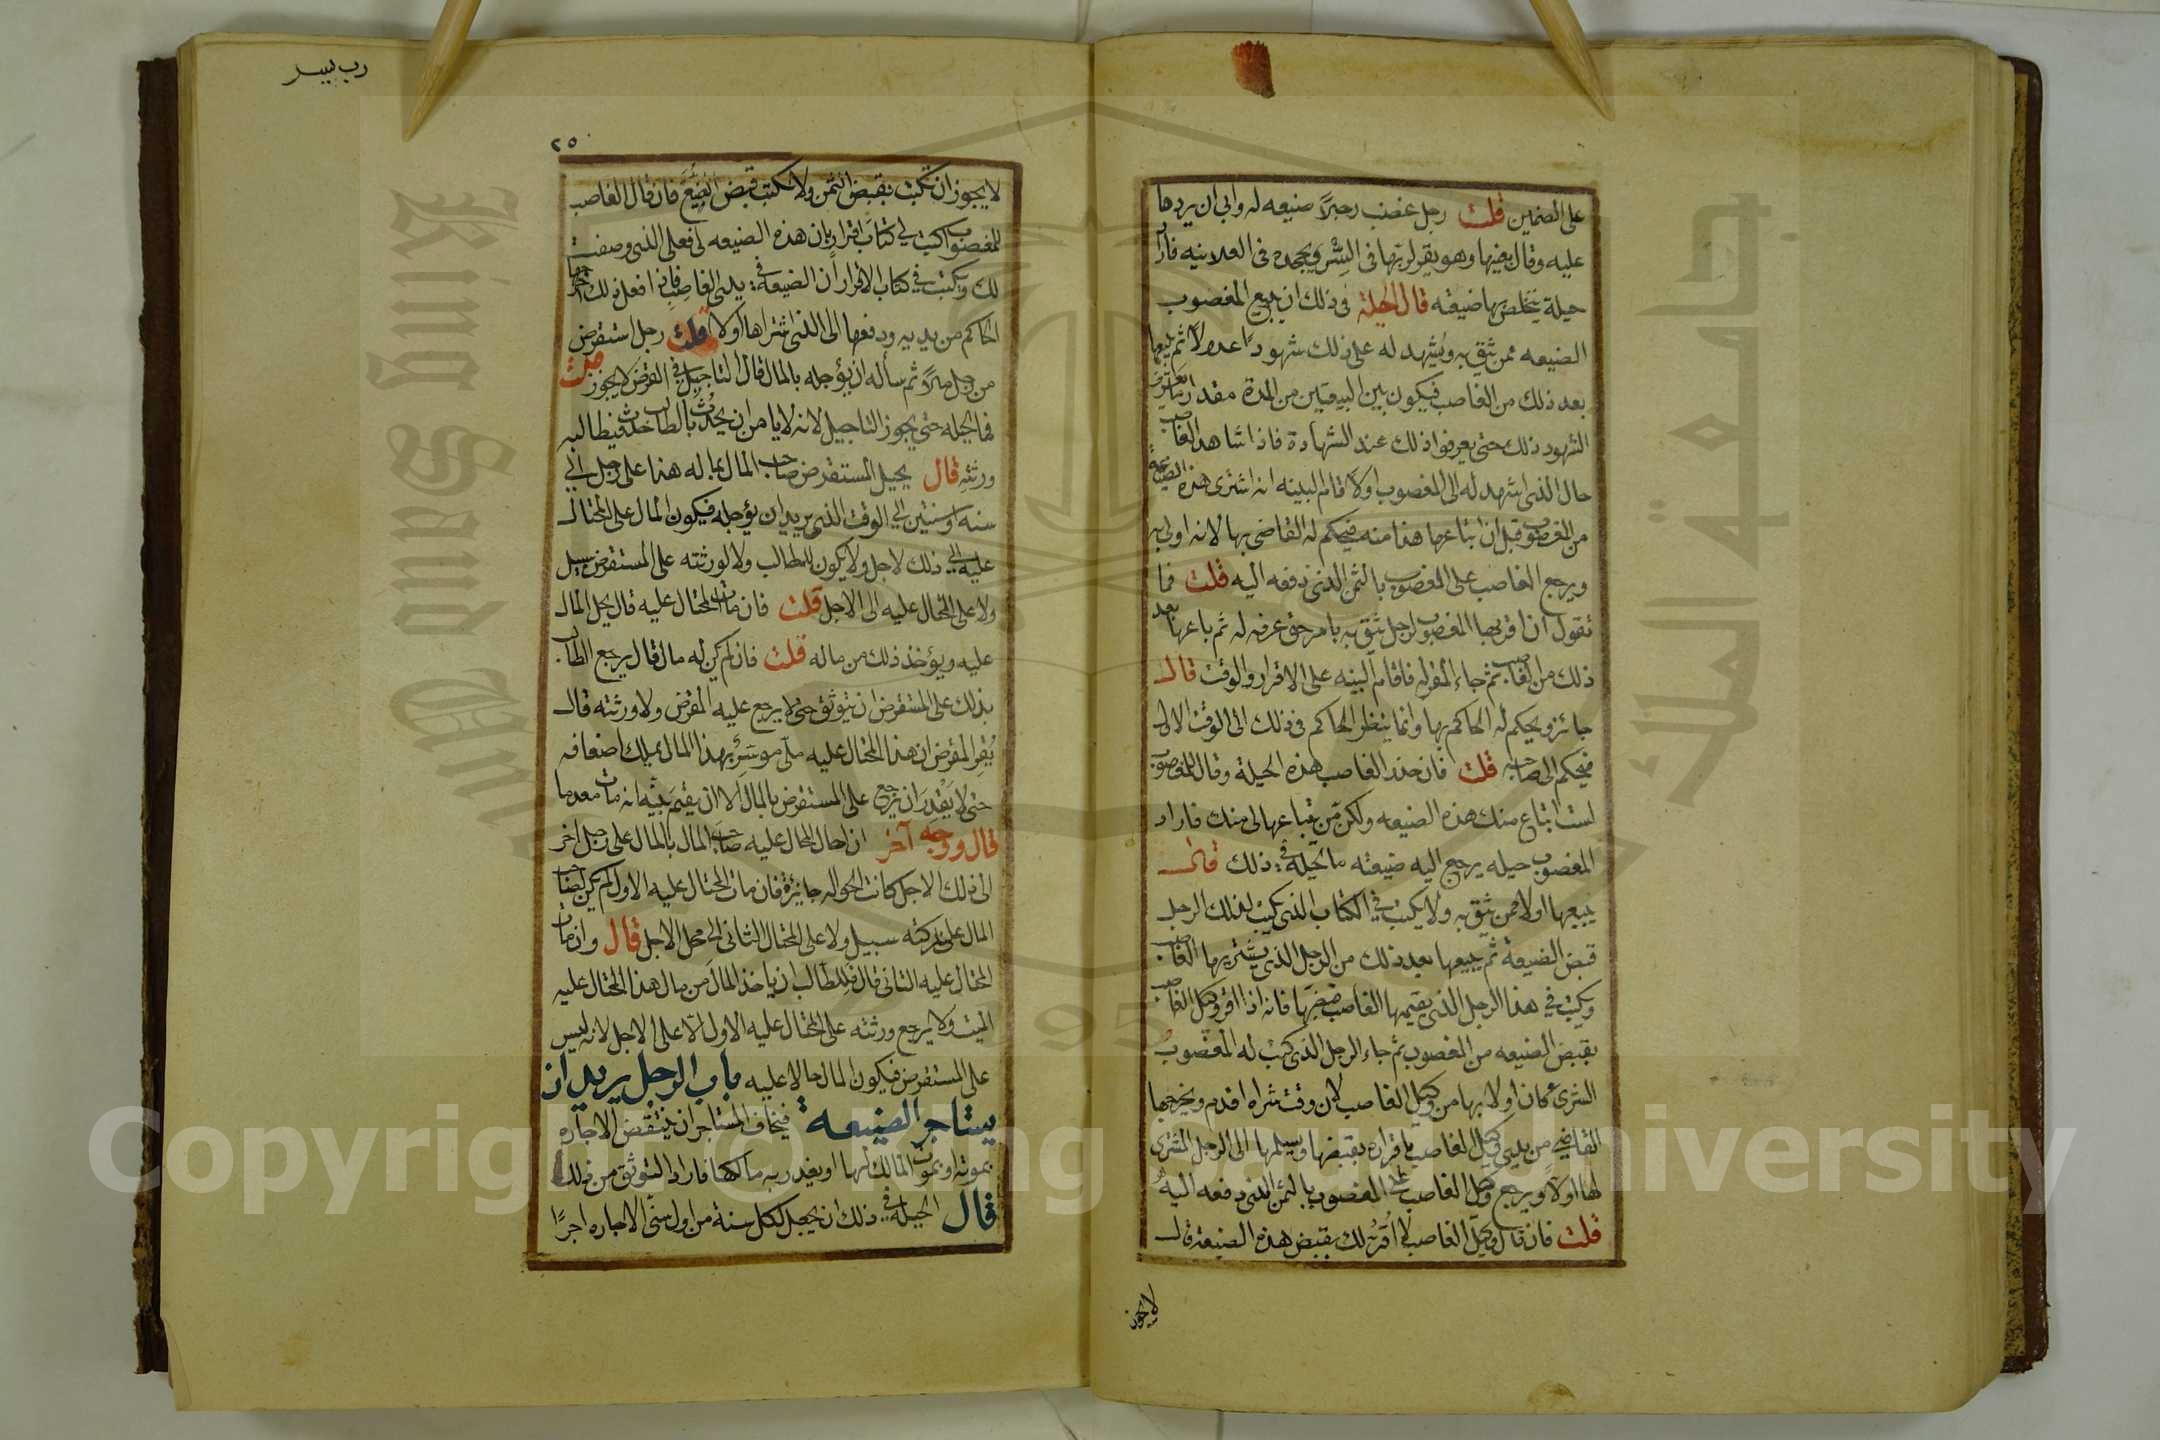 على الضمين قلت رجل غصب رجلاً ضيعه له وابى ان يردها
عليه وقال بعنيها وهو يقر له بها فى السِّر ويجحده فى العلانيه فاراد
حيلة يتخلص بها ضيعته قال الحيلة فى ذلك ان يبيع المغصوب
الضيعه ممن يثق به ويُشهد له على ذلك شهودًا عدولاً ثم يبيعها
بعد ذلك من الغاصب فيكون بين البيعتين من المدة مقدار ما يعرف
الشهود ذلك حتى يعرفوا ذلك عند الشهادة فاذا شاهد الغاصب
حال الذى اشهد له الى المغصوب اولاً قام البينه انه اشترى هذه الضيعة
من المغصوب قبل ان ابتاعها هذا منه فيحكم له القاضى بها لانه اولى به
ويرجع الغاصب على المغصوب بالثمن الذى دفعه اليه قلت فما
تقول ان اقر بها المغصوب لرجل يثق به بامر حق عرفه له ثم باعها بعد
ذلك من الغاصب ثم جاء المقر له فاقام البينه على الاقرار والوقت قال
جائز ويحكم له الحاكم بها وانما ينظر الحاكم فى ذلك الى الوقت الاول
فيحكم الى صاحبه قلت فان حذر الغاصب هذه الحيلة وقال للمغصوب
لست ابتاع منك هذه الضيعه ولكن من يبتاعها لى منك فاراد
المغصوب حيله يرجع اليه ضيعته ما الحيلة فى ذلك قال
يبيعها اولا ممن يثق به ولا يكتب فى الكتاب الذى يكتب لذلك الرجل
قبض الضيعة ثم يبيعها بعد ذلك من الرجل الذى يشتريها الغاصب
ويكتب فى هذا الرجل الذى يقيمها الغاصب قبضها فانه اذا اقر وكيل الغاصب
بقبض الضيعه من المغصوب ثم جاء الرجل الذى كتب له المغصوب
الشرى كان اولا بها من وكيل الغاصب لان وقت شراه اقدم ويخرجها
القاضى من يدى وكيل الغاصب باقراره بقبضها ويسلمها الى الرجل المشترى
لها اولاً ويرجع وكيل الغاصب على المغصوب بالثمن الذى دفعه اليه
قلت فان قال وكيل الغاصب لا اُقرّ لك بقبض هذه الضيعة قال
لا يجوز
رب يسر
٢٥
لا يجوز ان تكتب بقبض الثمن ولا تكتب قبض الضيعة فان قال الغاصب
للمغصوب اكتب لى كتاب اقرار بان هذه الضيعه لى فعلى الذى وصفت
لك ويكتب فى كتاب الاقرار أن الضيعة فى يدى الغاصب فاذا فعل ذلك اخرجها
الحاكم من يديه ودفعها الى الذى اشتراها اولا قلت رجل استقرض
من رجل مالاً ثم سأله ان يؤجله بالمال قال التاجيل فى القرض لا يجوز قلت
فما الحيله حتى يجوز التاجيل لانه لا يامن ان يحدُث بالطالب حدث فيطالبه
ورثته قال يحيل المستقرض صاحب المال بما له هذا على رجل الى
سنه او سنتين الى الوقت الذى يريد ان يؤجله فيكون المال على المحتال
عليه الى ذلك لاجل ولا يكون للمطالب ولا لورثته على المستقرض سبيل
ولا على المحتال عليه الى الاجل قلت فان مات المحتال عليه قال يحل المال
عليه ويؤخذ ذلك من ماله قلت فان لم يكن له مال قال يرجع الطالب
بذلك على المستقرض ان يتوثق حتى لا يرجع عليه المقرض ولا ورثته قال
يُقر المقرض ان هذا المحتال عليه ملى موسر بهذا المال يملك اضعافه
حتى لا يَقدر ان يرجع على المستقرض بالمال الا ان يقيم بينه انه مات معدما
قال ووجه آخر ان احال المحال عليه صاحب المال بالمال على رجل اخر
الى ذلك الاجل كانت الحواله جائزة فان مات المحتال عليه الاول لم يكن لصاحب
المال على تركته سبيل ولا على المحتال الثانى الى محل الاجل قال وان مات
المحتال عليه الثانى قال فللطالب ان ياخذ المال من مال هذا المحتال عليه
الميت ولا يرجع ورثته على المحتال عليه الاول الا على الاجل لانه ليس
على المستقرض فيكون المال حالا عليه باب الرجل يريد ان
يستاجر الضيعة فيخاف المستاجر ان ينتقض الاجاره
بموته او بموت المالك لها او يغدر به مالكها فاراد التوثق من ذلك
قال الحيلة فى ذلك ان يجعل لكل سنة من اول سنى الاجاره اجرًا
King Saud University
جامعة الملك
1957
Copyright © King Saud University